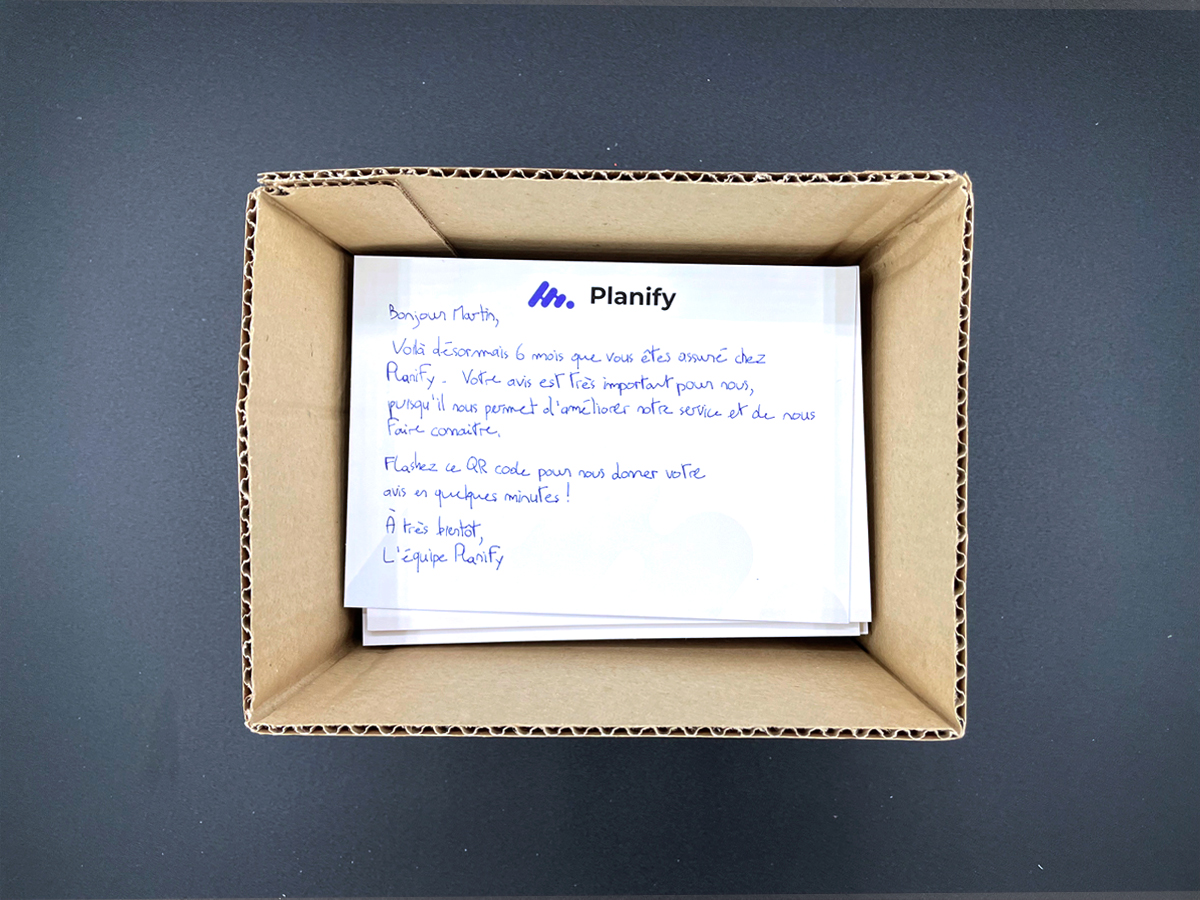 Planify
Bonjour Martin,
Voilà désormais 6 mois que vous êtes assuré chez
Planify. Votre avis est très important pour nous,
puisqu'il nous permet d'améliorer notre service et de nous
faire connaitre.
Flashez ce QR code pour nous donner votre
avis en quelques minutes !
À très bientôt,
L'équipe Planify